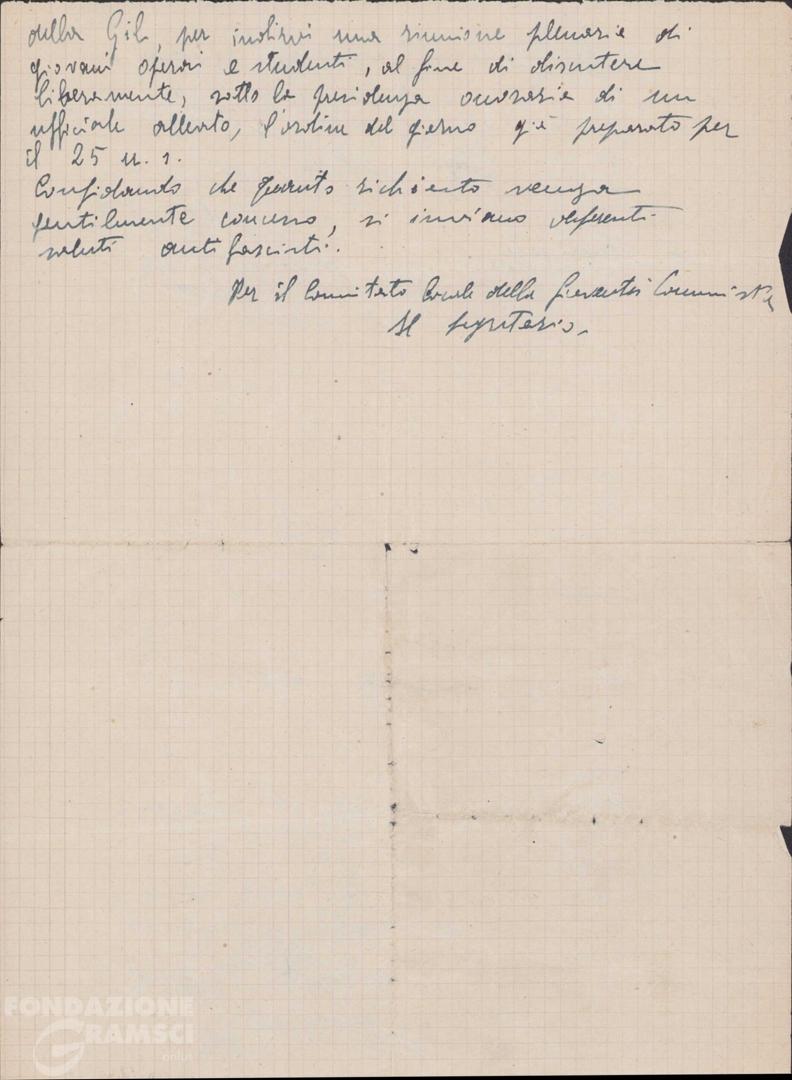 della Gil, per indirvi una riunione plenaria di
giovani operai e studenti, al fine di discutere
liberamente, sotto la presidenza onoraria di un
ufficiale alleato, l'ordine del giorno già preparato per
il 25 u. s.
Confidando che quanto richiesto venga
gentilmente concesso, si inviano deferenti
saluti antifascisti.
Per il Comitato Locale della Gioventù Comunista
Il Segretario.
FONDAZIONE
GRAMSCI
onlus